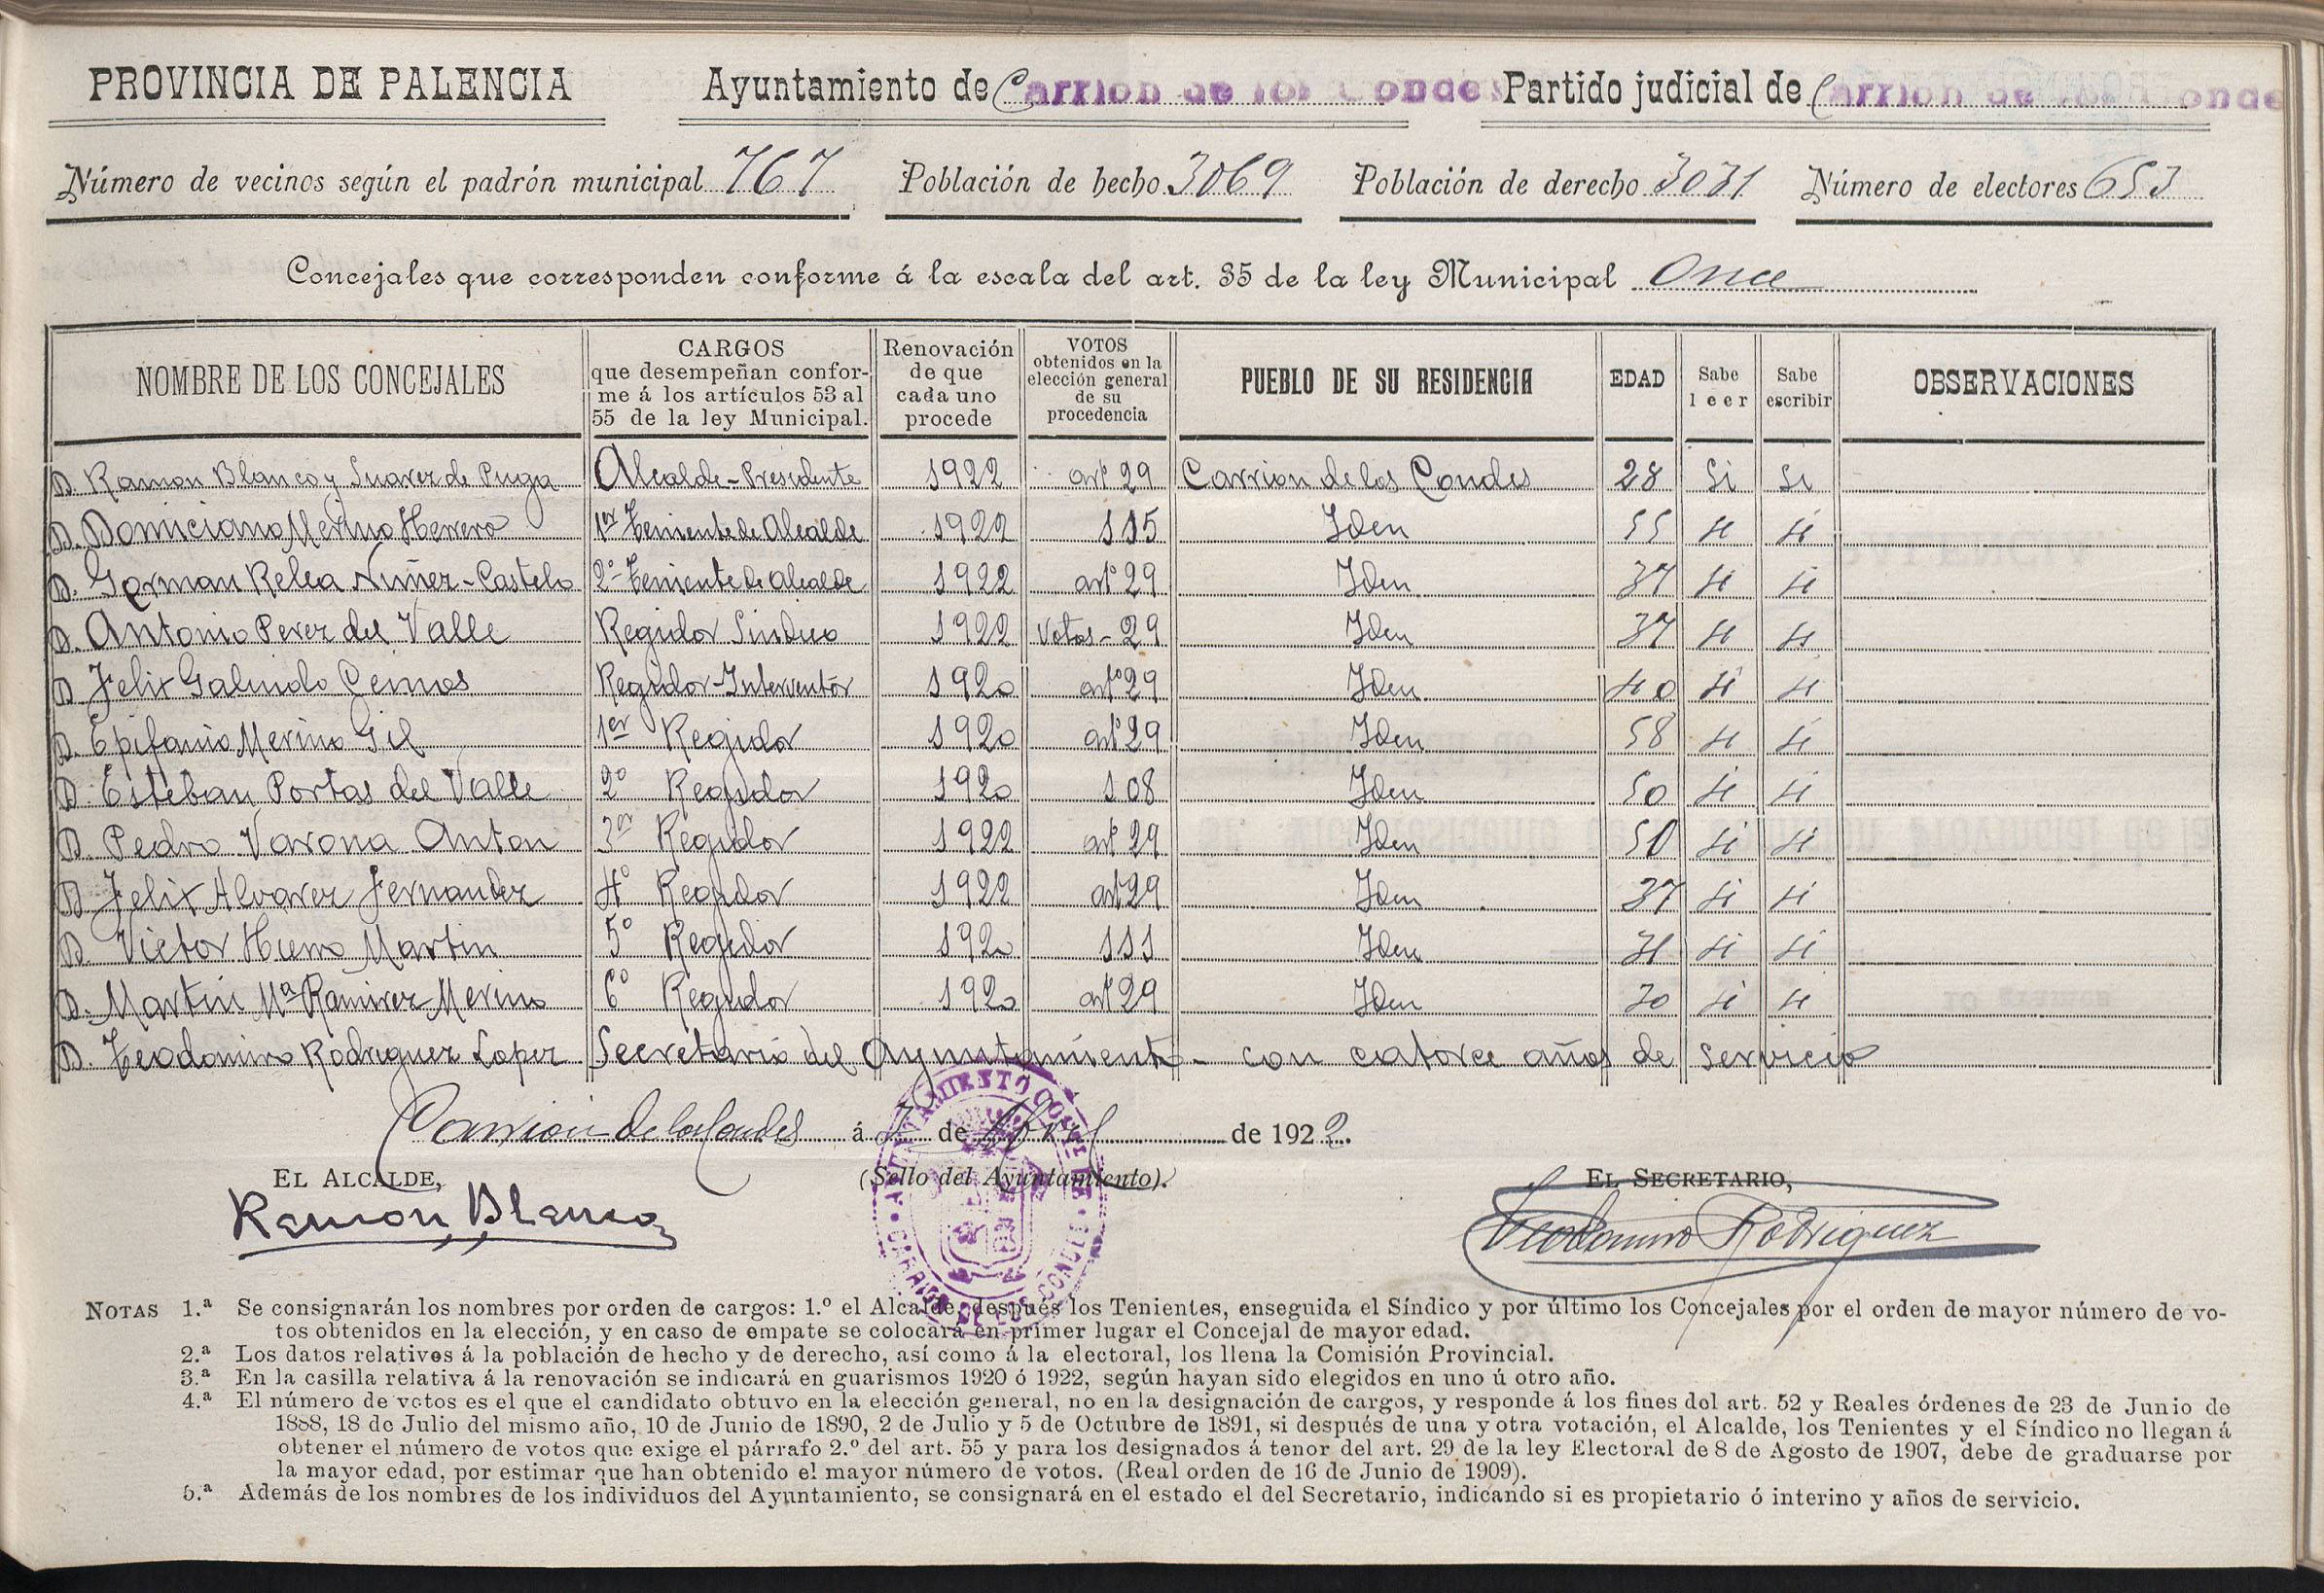 PROVINCIA DE PALENCIA Ayuntamiento de Carrion de los Condes Partido judicial de Carrion de los Conde
Número de vecinos según el padrón municipal 767 Población de hecho 3069 Población de derecho 3031 Número de electores 653
Concejales que corresponden conforme á la escala del art. 35 de la ley Municipal Once
NOMBRE DE LOS CONCEJALES
CARGOS
que desempeñan confor-
me á los artículos 53 al
55 de la ley Municipal.
Renovación
de que
cada uno
procede
VOTOS
obtenidos en la
elección general
de su
procedencia
PUEBLO DE SU RESIDENCIA
EDAD
Sabe
leer
Sabe
escribir
OBSERVACIONES
D. Ramon Blanco y Suarez de Puga Alcalde-Presidente 1922 artº 29 Carrion de los Condes 28 Si Si
D. Domiciano Merino Herrero 1er Teniente de Alcalde 1922 115 Iden 55 si si
D. German Relea Nuñez-Castelo 2º Teniente de Alcalde 1922 artº 29 Iden 37 si si
D. Antonio Perez del Valle Regidor Sindico 1922 Votos-29 Iden 37 si si
D. Felix Galindo Ceinos Regidor-Interventor 1920 artº 29 Iden 40 si si
D. Epifanio Merino Gil 1er Regidor 1920 artº 29 Iden 58 si si
D. Esteban Portas del Valle 2º Regidor 1920 108 Iden 50 si si
D. Pedro Varona Anton 3er Regidor 1922 artº 29 Iden 50 si si
D. Felix Alvarez Fernandez 4º Regidor 1922 artº 29 Iden 37 si si
D. Victor Hierro Martin 5º Regidor 1920 111 Iden 31 si si
D. Martin Mª Ramirez Merino 6º Regidor 1920 artº 29 Iden 30 si si
D. Teodomiro Rodriguez Lopez Secretario del Ayuntamiento - con catorce años de servicio
Carrion de los Condes á de Abril de 1922.
EL ALCALDE, (Sello del Ayuntamiento). EL SECRETARIO,
Ramon Blanco Teodomiro Rodriguez
AYUNTAMIENTO CONST. DE CARRION DE LOS CONDES
NOTAS 1.ª Se consignarán los nombres por orden de cargos: 1.º el Alcalde, después los Tenientes, enseguida el Síndico y por último los Concejales por el orden de mayor número de vo-
tos obtenidos en la elección, y en caso de empate se colocará en primer lugar el Concejal de mayor edad.
2.ª Los datos relativos á la población de hecho y de derecho, así como á la electoral, los llena la Comisión Provincial.
3.ª En la casilla relativa á la renovación se indicará en guarismos 1920 ó 1922, según hayan sido elegidos en uno ú otro año.
4.ª El número de votos es el que el candidato obtuvo en la elección general, no en la designación de cargos, y responde á los fines del art. 52 y Reales órdenes de 23 de Junio de
1888, 18 de Julio del mismo año, 10 de Junio de 1890, 2 de Julio y 5 de Octubre de 1891, si después de una y otra votación, el Alcalde, los Tenientes y el Síndico no llegan á
obtener el número de votos que exige el párrafo 2.º del art. 55 y para los designados á tenor del art. 29 de la ley Electoral de 8 de Agosto de 1907, debe de graduarse por
la mayor edad, por estimar que han obtenido el mayor número de votos. (Real orden de 16 de Junio de 1909).
5.ª Además de los nombres de los individuos del Ayuntamiento, se consignará en el estado el del Secretario, indicando si es propietario ó interino y años de servicio.